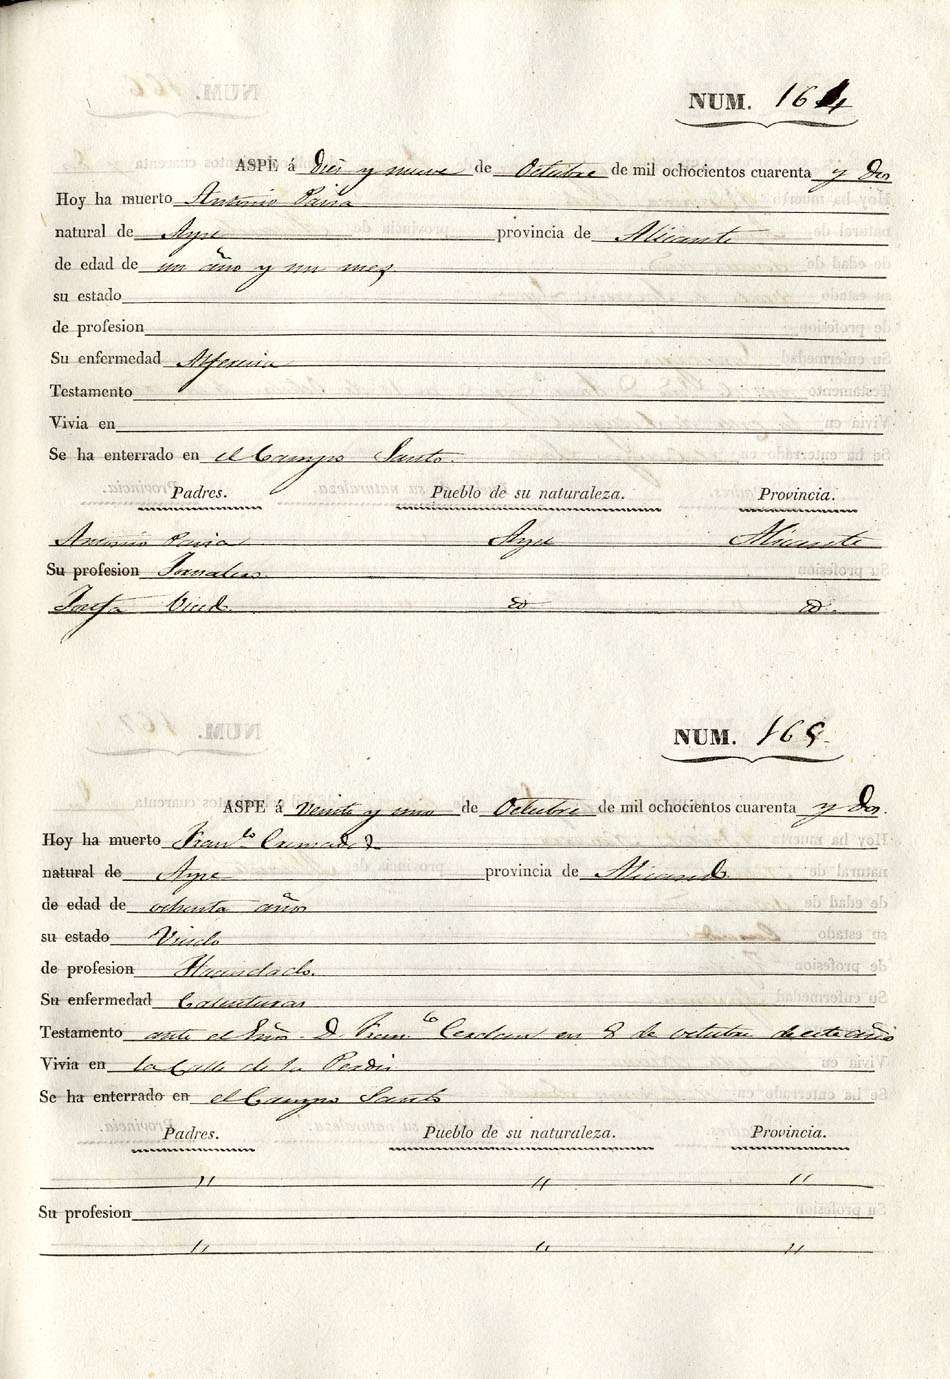 NUM. 164
ASPE á Dies y nueve de Octubre de mil ochocientos cuarenta y Dos
Hoy ha muerto Antonio
natural de Aspe provincia de Alicante
de edad de un año y un mes
su estado
de profesion
Su enfermedad Alferecia
Testamento
Vivia en
Se ha enterrado en el Campo Santo.
Padres. Pueblo de su naturaleza. Provincia.
Antonio Aspe Alicante
Su profesion Jornalero.
Josefa id. id.
NUM. 165.
ASPE á Veinte y uno de Octubre de mil ochocientos cuarenta y Dos.
Hoy ha muerto Fran.co Cremades
natural de Aspe provincia de Alicante
de edad de ochenta años
su estado Viudo
de profesion Hacendado.
Su enfermedad Calenturas
Testamento ante el Esño. D. Fran.co Cerdan en 8 de octubre de este año
Vivia en la Calle de la
Se ha enterrado en el Campo Santo
Padres. Pueblo de su naturaleza. Provincia.
" " "
Su profesion
" " "